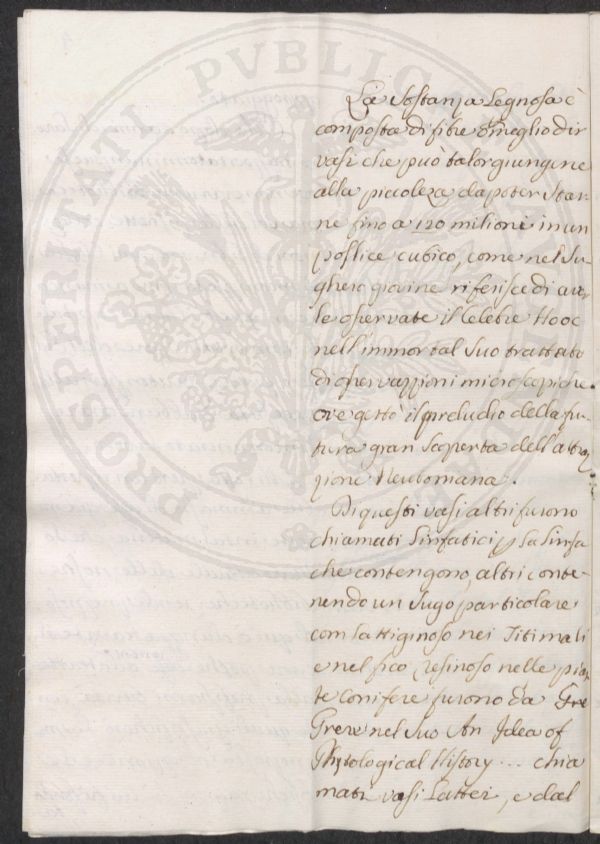 PUBLICAE
PROSPERITATI
La Sostanza Legnosa è
composta di fibre o meglio dir
vasi che può talor giungere
alla piccoleza da poter star-
ne fino a 120 milioni in un
pollice cubico, come nel Su-
ghero giovine riferisce di aver
le osservate il Celebre Hooc
nell'immortal suo trattato
di osservazzioni microscopiche
ove gettò il preludio della fu-
tura gran scoperta dell'attra
zione Neutoniana.
Di questi vasi altri furono
chiamati Linfatici p la linfa
che contengono, altri conte-
nendo un sugo particolare
com lattiginoso nei Titimali
e nel fico, resinoso nelle pian
te conifere furono da Gre
Grew nel suo An Idea of
Phytological History ... chia
mati vasi Lattei, e dal